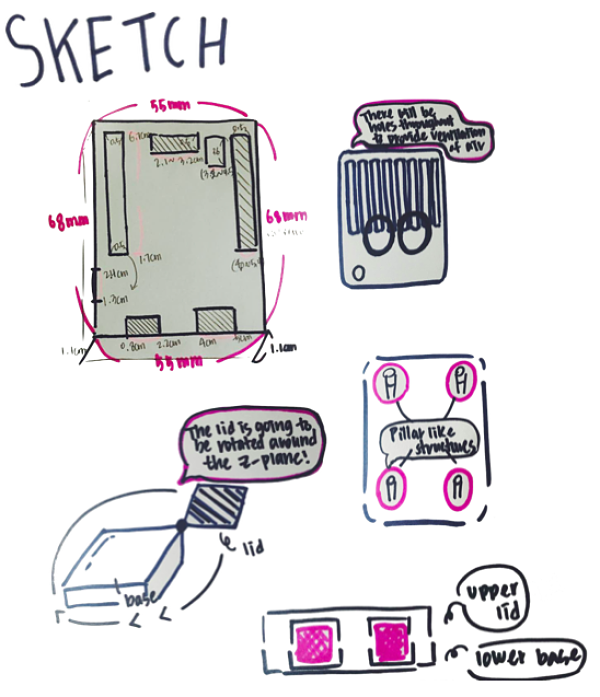 SKETCH
55mm
68mm
68mm
1.7cm
1.1cm
0.8cm
2.2cm
4cm
1.1cm
55mm
There will be
holes throughout
to provide ventilation
of air
Pillar like
structures
The lid is going to
be rotated around
the Z-plane!
lid
base
upper
lid
lower base